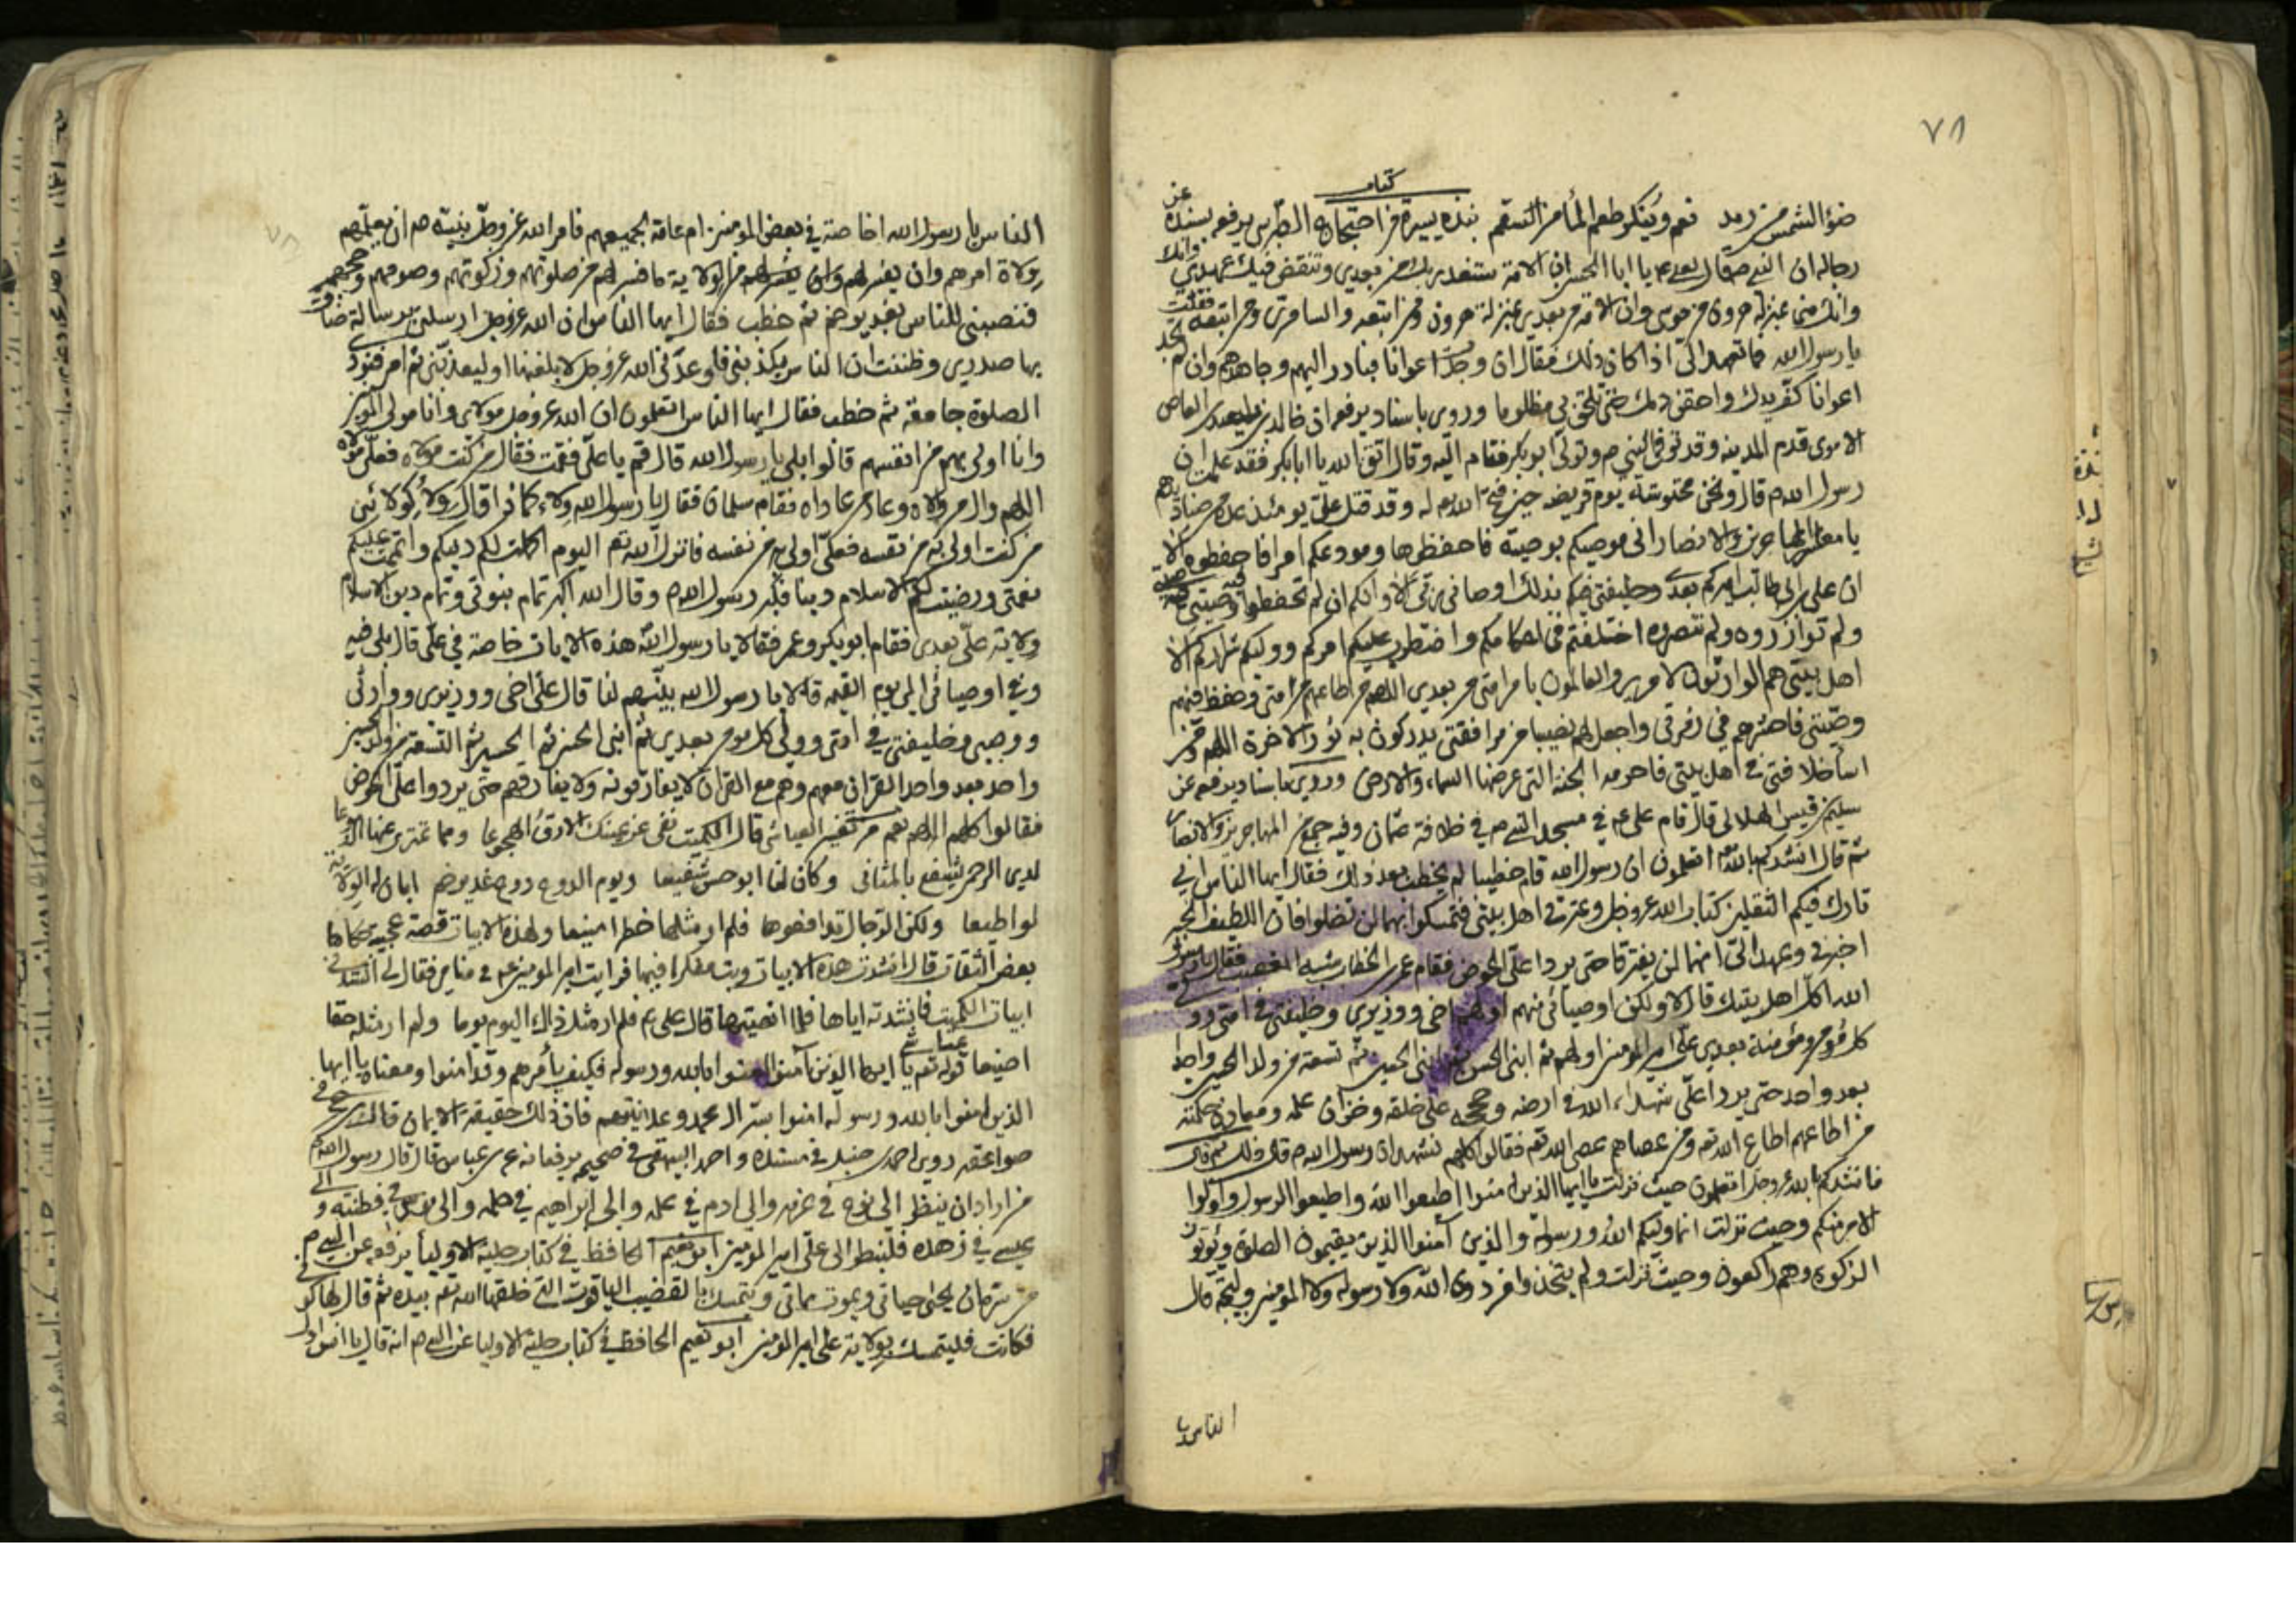 ٧٨
كتاب
ضوء الشمس من رمد نعم وينكر طعم الماء من السقم نبذة يسيرة من احتجاج الطبرسي يرفعه بسنده عن
رجاله ان النبي ص قال لعلي ع يا ابا الحسن ان الامة ستغدر بك من بعدي وتنقض فيك عهدي وانك
وانك مني بمنزلة هرون من موسى وان الامة من بعدي بمنزلة هرون ومن اتبعه والسامري ومن اتبعه فقلت
يا رسول الله فما تعهد الي اذا كان ذلك فقال ان وجدت اعوانا فبادر اليهم وجاهدهم وان لم تجد
اعوانا كف يدك واحقن دمك حتى تلحق بي مظلوما وروي باسناد يرفعه ان خالد بن سعيد بن العاص
الاموي قدم المدينه وقد توفي النبي ص وتولى ابو بكر فقام اليه وقال اتق الله يا ابا بكر فقد علمت ان
رسول الله ص قال ونحن محتوشته يوم قريضه حين فتح الله له وقد قتل علي يومئذ عدة من صناديدهم
يا معاشر المهاجرين والانصار اني موصيكم بوصية فاحفظوها ومودعكم امرا فاحفظوه الا
ان علي بن ابي طالب اميركم بعدي وخليفتي فيكم بذلك اوصاني ربي الا وانكم ان لم تحفظوا فيه وصيتي
ولم توازروه ولم تنصروه اختلفتم في احكامكم واضطرب عليكم امركم ووليكم شراركم الا
اهل بيتي هم الوارثون لامري والعالمون بامر امتي من بعدي اللهم من اطاعهم من امتي وحفظ فيهم
وصيتي فاحشرهم في زمرتي واجعل لهم نصيبا من مرافقتي يدركون به نور الاخرة اللهم ومن
اساء خلافتي في اهل بيتي فاحرمه الجنة التي عرضها السماء والارض وروي باسناد يرفعه عن
سليم بن قيس الهلالي قال قام علي ع في مسجد النبي ص في خلافة عثمان وفيه جمع من المهاجرين والانصار
ثم قال انشدكم بالله اتعلمون ان رسول الله قام خطيبا لم يخطب بعد ذلك فقال ايها الناس اني
تارك فيكم الثقلين كتاب الله عز وجل وعترتي اهل بيتي فتمسكوا بهما لن تضلوا فان اللطيف الخبير
اخبرني وعهد الي انهما لن يفترقا حتى يردا علي الحوض فقام عمر بن الخطاب شبه المغضب فقال يا رسول
الله اكل اهل بيتك قال لا ولكن اوصيائي منهم اولهم اخي ووزيري وخليفتي في امتي وولي
كل مؤمن ومؤمنة بعدي علي امير المؤمنين اولهم ثم ابني الحسن ثم ابني الحسين ثم تسعة من ولد الحسين واحدا
بعد واحد حتى يردا علي شهداء الله في ارضه وحججه على خلقه وخزان علمه ومعادن حكمته
من اطاعهم اطاع الله تعه ومن عصاهم عصى الله تعه فقالوا كلهم نشهد ان رسول الله ص قال ذلك ثم قال
فانشدكم بالله عز وجل اتعلمون حيث نزلت يا ايها الذين امنوا اطيعوا الله واطيعوا الرسول واولوا
الامر منكم وحيث نزلت انما وليكم الله ورسوله والذين آمنوا الذين يقيمون الصلوة ويؤتون
الزكوة وهم راكعون وحيث نزلت ولم يتخذوا من دون الله ولا رسوله ولا المؤمنين وليجة قال
الناس يا
الناس يا رسول الله اخاصة في بعض المؤمنين ام عامة لجميعهم فامر الله عز وجل نبيه ص ان يعلمهم
ولاة امرهم وان يفسر لهم من الولاية ما فسر لهم من صلوتهم وزكوتهم وصومهم وحجهم
فنصبني للناس بغدير خم ثم خطب فقال ايها الناس ان الله عز وجل ارسلني برسالة ضاق
بها صدري وظننت ان الناس يكذبني فاوعدني الله عز وجل لابلغنها او ليعذبني ثم امر فنودي
الصلوة جامعة ثم خطب فقال ايها الناس اتعلمون ان الله عز وجل مولاي وانا مولى المؤمنين
وانا اولى بهم من انفسهم قالوا بلى يا رسول الله قال قم يا علي فقمت فقال من كنت مولاه فعلي مولاه
اللهم وال من والاه وعاد من عاداه فقام سلمان فقال يا رسول الله ولاء كماذا قال ولاء كولائي
من كنت اولى به من نفسه فعلي اولى به من نفسه فانزل الله تعه اليوم اكملت لكم دينكم واتممت عليكم
نعمتي ورضيت لكم الاسلام دينا فكبر رسول الله ص وقال الله اكبر تمام نبوتي وتمام دين الاسلام
ولاية علي بعدي فقام ابو بكر وعمر فقالا يا رسول الله هذه الايات خاصة في علي قال بلى فيه
وفي اوصيائي الى يوم القيمه قالا يا رسول الله بينهم لنا قال علي اخي ووزيري ووارثي
ووصيي وخليفتي في امتي وولي كل مومن بعدي ثم ابني الحسن ثم الحسين ثم التسعة من ولد الحسين
واحد بعد واحد القران معهم وهم مع القران لا يفارقونه ولا يفارقهم حتى يردوا علي الحوض
فقالوا كلهم اللهم نعم من تفسير العياشي قال الكميت نفى عن عينك الارق الهجوعا وهما تمتري عنها الدموعا
لدى الرحمن يشفع بالمثاني وكان لنا ابو حسن شفيعا ويوم الدوح دوح غدير خم ابان له الولاية
لو اطيعا ولكن الرجال تدافعوها فلم ار مثلها خطرا منيعا ولهذه الابيات قصة عجيبة حكاها
بعض الثقات قال انشدت هذه الابيات وبت مفكرا فيها فرايت امير المومنين ع في منامي فقال لي انشدني
ابيات الكميت فانشدته اياها فلما انهيتها قال علي ع فلم ار مثل ذاك اليوم يوما ولم ار مثله حقا
اضيعا قوله تعه يا ايها الذين آمنوا امنوا بالله ورسوله فكيف يأمرهم وقد امنوا ومعناه يا ايها
الذين امنوا بالله ورسوله امنوا بسر ال محمد وعلانيتهم فان ذلك حقيقة الايمان قال في
صواعقه روى احمد بن حنبل في مسنده واحمد البيهقي في صحيحه يرفعانه عن ابن عباس قال قال رسول الله ص
من اراد ان ينظر الى نوح في عزمه والى ادم في علمه والى ابراهيم في حلمه والى موسى في فطنته والى
عيسى في زهده فلينظر الى علي امير المؤمنين ابو نعيم الحافظ في كتاب حلية الاوليا يرفعه عن النبي ص
من سره ان يحيى حياتي ويموت مماتي ويتمسك بالقضيب الياقوت التي خلقها الله تعه بيده ثم قال لها كوني
فكانت فليتمسك بولاية علي امير المؤمنين ابو نعيم الحافظ في كتاب حلية الاوليا عن النبي ص انه قال يا انس اول